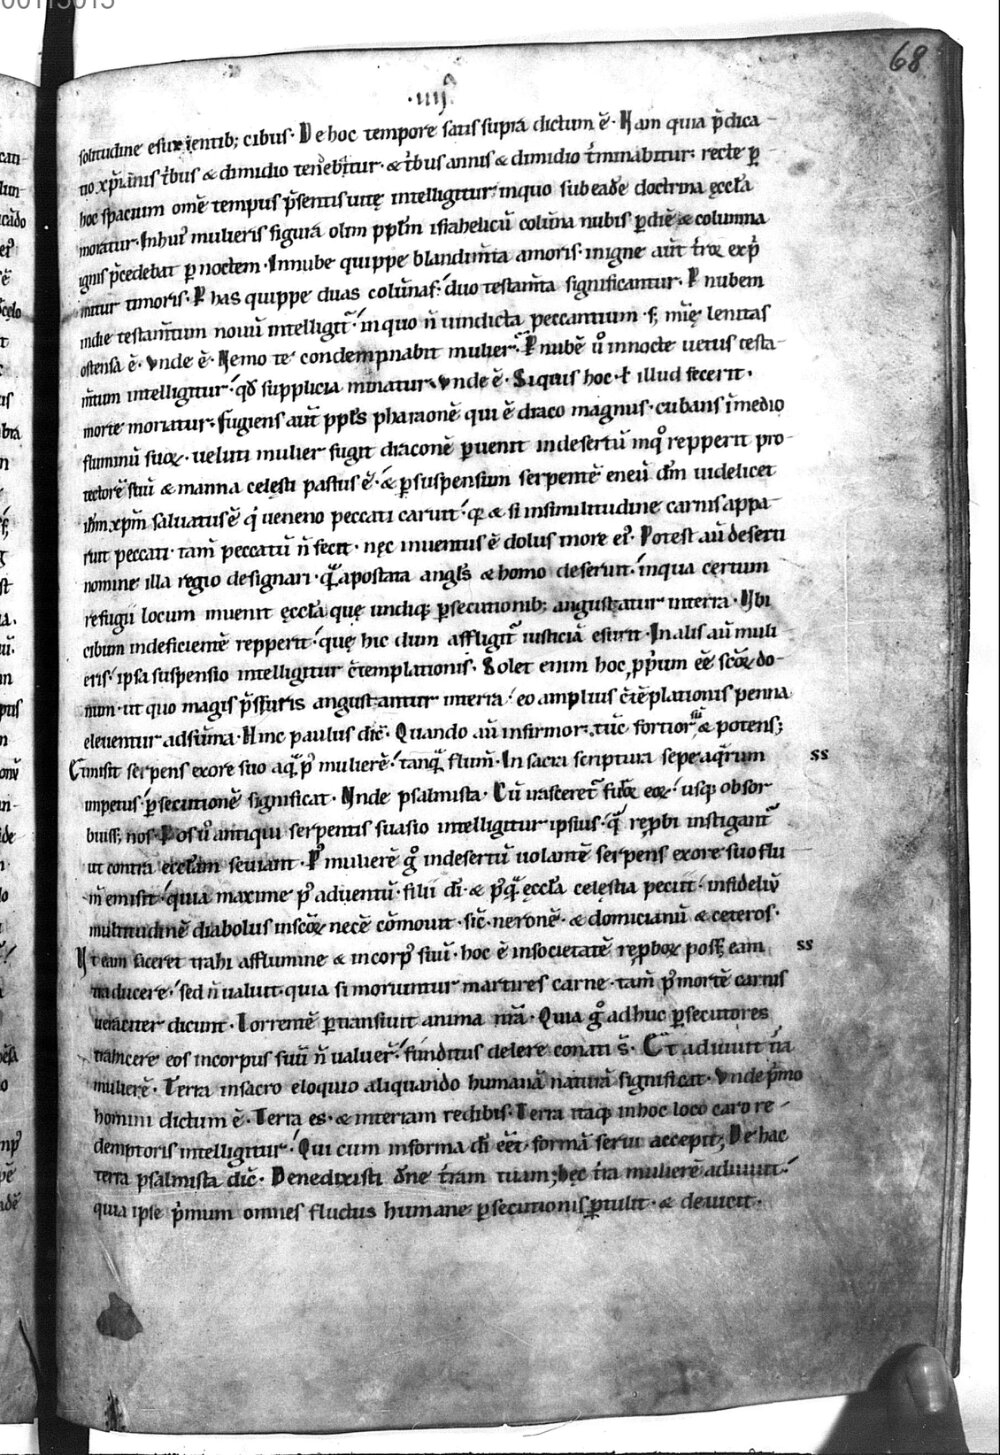 00113013
68
·iiij·
solitudine esurientib; cibus. De hoc tempore satis supra dictum ē. Nam quia p̄dica-
tio xp̄ianis t̄bus & dimidio tenebitur. & t̄bus annis & dimidio t̄minabitur. recte ꝑ
hoc spacium om̄e tempus p̄sentis uitę intelligitur. inquo sub eadē doctrina ęccl̄a
moratur. In hui᷒ mulieris figurā olim ppl̄m israheliticū colūna nubis ꝑ diē & columna
ignis p̄cedebat ꝑ noctem. In nube quippe blandim̄ta amoris. in igne aūt t̄roꝝ exp̄
mitur timoris. Ꝑ has quippe duas colūnas. duo testam̄ta significantur. Ꝑ nubem
in die testam̄tum nouū intelligit᷑. in quo n̄ uindicta peccantium. s; mīę lenitas
ostensa ē. Vnde ē. Nemo te condempnabit mulier. Ꝑ nubē ů in nocte uetus testa-
m̄tum intelligitur. qđ supplicia minatur. Vnde ē. Siquis hoc. ł illud fecerit.
morte moriatur. fugiens aūt ppl̄s pharaonē qui ē draco magnus. cubans in medio
fluminū suoꝝ. ueluti mulier fugit draconē ꝑuenit in desertū in qͦ repperit pro-
tectorē suū & manna celęsti pastus ē. & ꝑ suspensum serpentē eneū dn̄m uidelicet
ih̄m xp̄m saluatus ē q̇ ueneno peccati caruit. qꝫ & si in similitudine carnis appa-
ruit peccati. tam̄ peccatū n̄ fecit. nęc inuentus ē dolus in ore ei᷒. Potest aū deserti
nomine illa regio designari. q̄ apostata angl̄s & homo deseruit. in qua certum
refugii locum inuenit ęccl̄a quę undiqꝫ ꝑsecutionib; angustatur in terra. Vbi
cibum indeficientē repperit. quę hic dum affligit᷑ iusticiā esurit. In alis aū muli-
eris. ipsa suspensio intelligitur c̄templationis. Solet enim hoc ꝓprium eē sc̄oꝝ do-
num. ut quo magis p̄ssuris angustantur in terra. eo amplius c̄tēplationis penna
eleuentur ad sūma. Hinc paulus dic̄. Quando aū infirmor. tūc fortior sū & potens;
Et misit serpens ex ore suo aquā p᷒ mulierē. tanquā flum̄. In sacra scriptura sepe aq̄rum ss
impetus. ꝑsecutionē significat. Vnde psalmista. Cū irasceret᷑ furor eoꝝ. usqꝫ obsor-
buiss; nos. Ꝑ os ů antiqui serpentis suasio intelligitur ipsius. q̄ rep̄bi instigant᷑
ut contra eccl̄am seuiant. P᷒ mulierē gͦ in desertū uolantē serpens ex ore suo flu-
m̄ emisit. quia maxime p᷒ aduentū filii dī. & p᷒ q̄ ęccl̄a celęstia peciit. infideliū
multitudinē diabolus in sc̄oꝝ necē cōmouit. sic̄ neronē. & domicianū & ceteros.
Vt eam faceret trahi a flumine & in corp᷒ suū. hoc ē in societatē rep̄boꝝ poss; eam ss
traducere. sed n̄ ualuit. quia si moriuntur martires carne. tam̄ p᷒ mortē carnis
ueraciter dicunt. Torrentē ꝑtransiuit anima nr̄a. Quia gͦ adhuc ꝑsecutores
traiicere eos in corpus suū n̄ ualuer̄. funditus delere conati s̄. Et adiuuit t̄ra
mulierē. Terra in sacro eloquio aliquando humanā naturā significat. Vnde p̄mo
homini dictum ē. Terra es. & in terram redibis. Terra itaqꝫ in hoc loco caro re-
demptoris intelligitur. Qui cum in forma dī eēt. formā serui accepit; De hac
terra psalmista dic̄. Benedixisti dn̄e t̄ram tuam; hęc t̄ra mulierē adiuuit.
quia ipse p̄mum omnes fluctus humane ꝑsecutionis ꝑtulit. & deuicit.